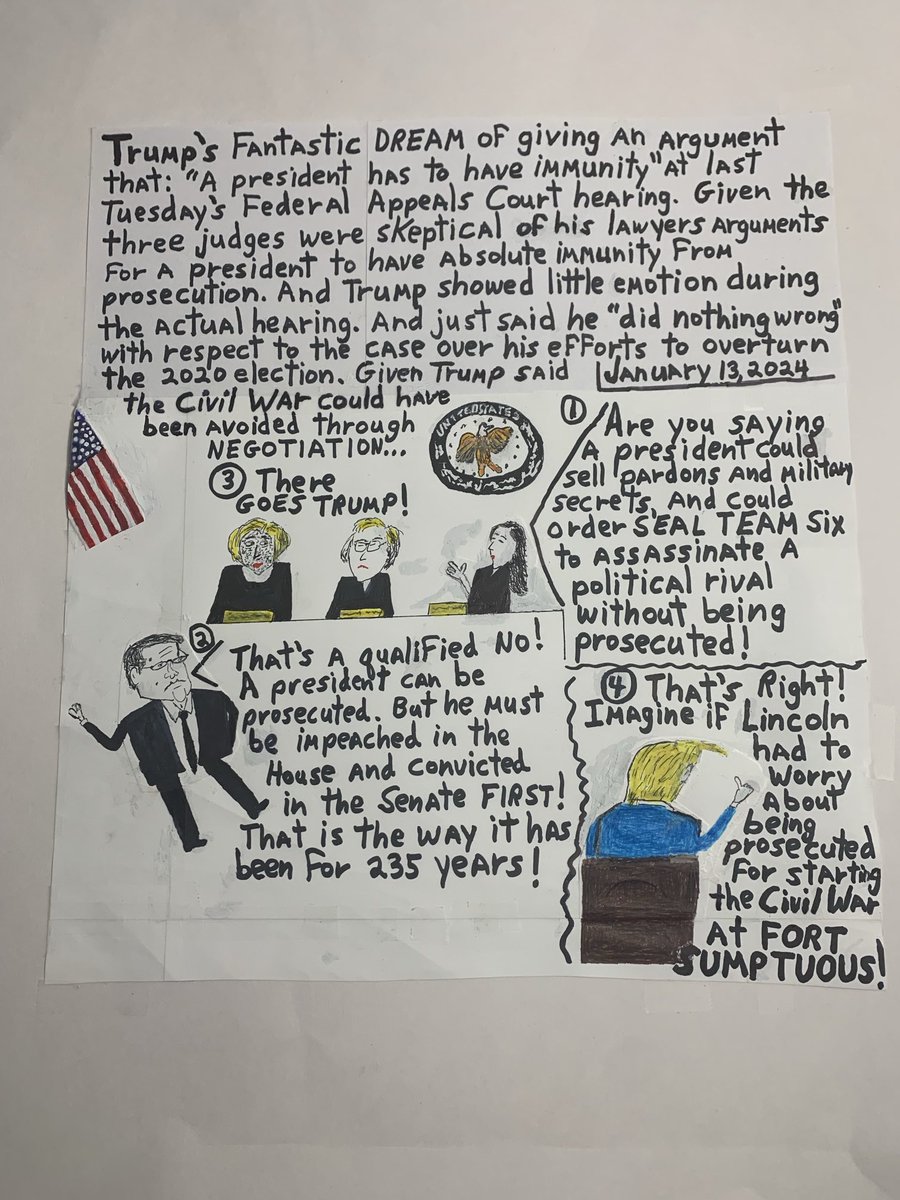 Trump's Fantastic DREAM of giving An Argument
that: "A president has to have immunity" At last
Tuesday's Federal Appeals Court hearing. Given the
three judges were skeptical of his lawyers Arguments
For A president to have Absolute immunity From
prosecution. And Trump showed little emotion during
the Actual hearing. And just said he "did nothing wrong"
with respect to the case over his efforts to overturn
the 2020 election. Given Trump said
January 13, 2024
the Civil War could have
been Avoided through
NEGOTIATION...
UNITED STATES
1 Are you saying
A president could
sell pardons And military
secrets, And could
order SEAL TEAM Six
to Assassinate A
political rival
without being
prosecuted!
2 That's A qualified No!
A president can be
prosecuted. But he must
be impeached in the
House And Convicted
in the Senate FIRST!
That is the way it has
been For 235 years!
3 There
GOES TRUMP!
4 That's Right!
Imagine if Lincoln
had to
worry
About
being
prosecuted
For starting
the Civil War
At FORT
SUMPTUOUS!